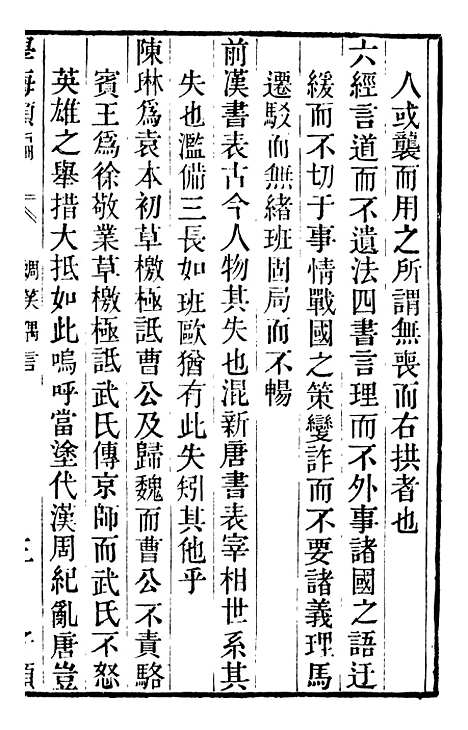 人或襲而用之所謂無喪而右拱者也
六經言道而不遺法四書言理而不外事諸國之語迂
緩而不切于事情戰國之策變詐而不要諸義理馬
遷駁而無緒班固局而不暢
前漢書表古今人物其失也混新唐書表宰相世系其
失也濫備三長如班歐猶有此失矧其他乎
陳琳為袁本初草檄極詆曹公及歸魏而曹公不責駱
賓王為徐敬業草檄極詆武氏傳京師而武氏不怒
英雄之舉措大抵如此嗚呼當塗代漢周紀亂唐豈
學海類編
調笑偶言
三
子類